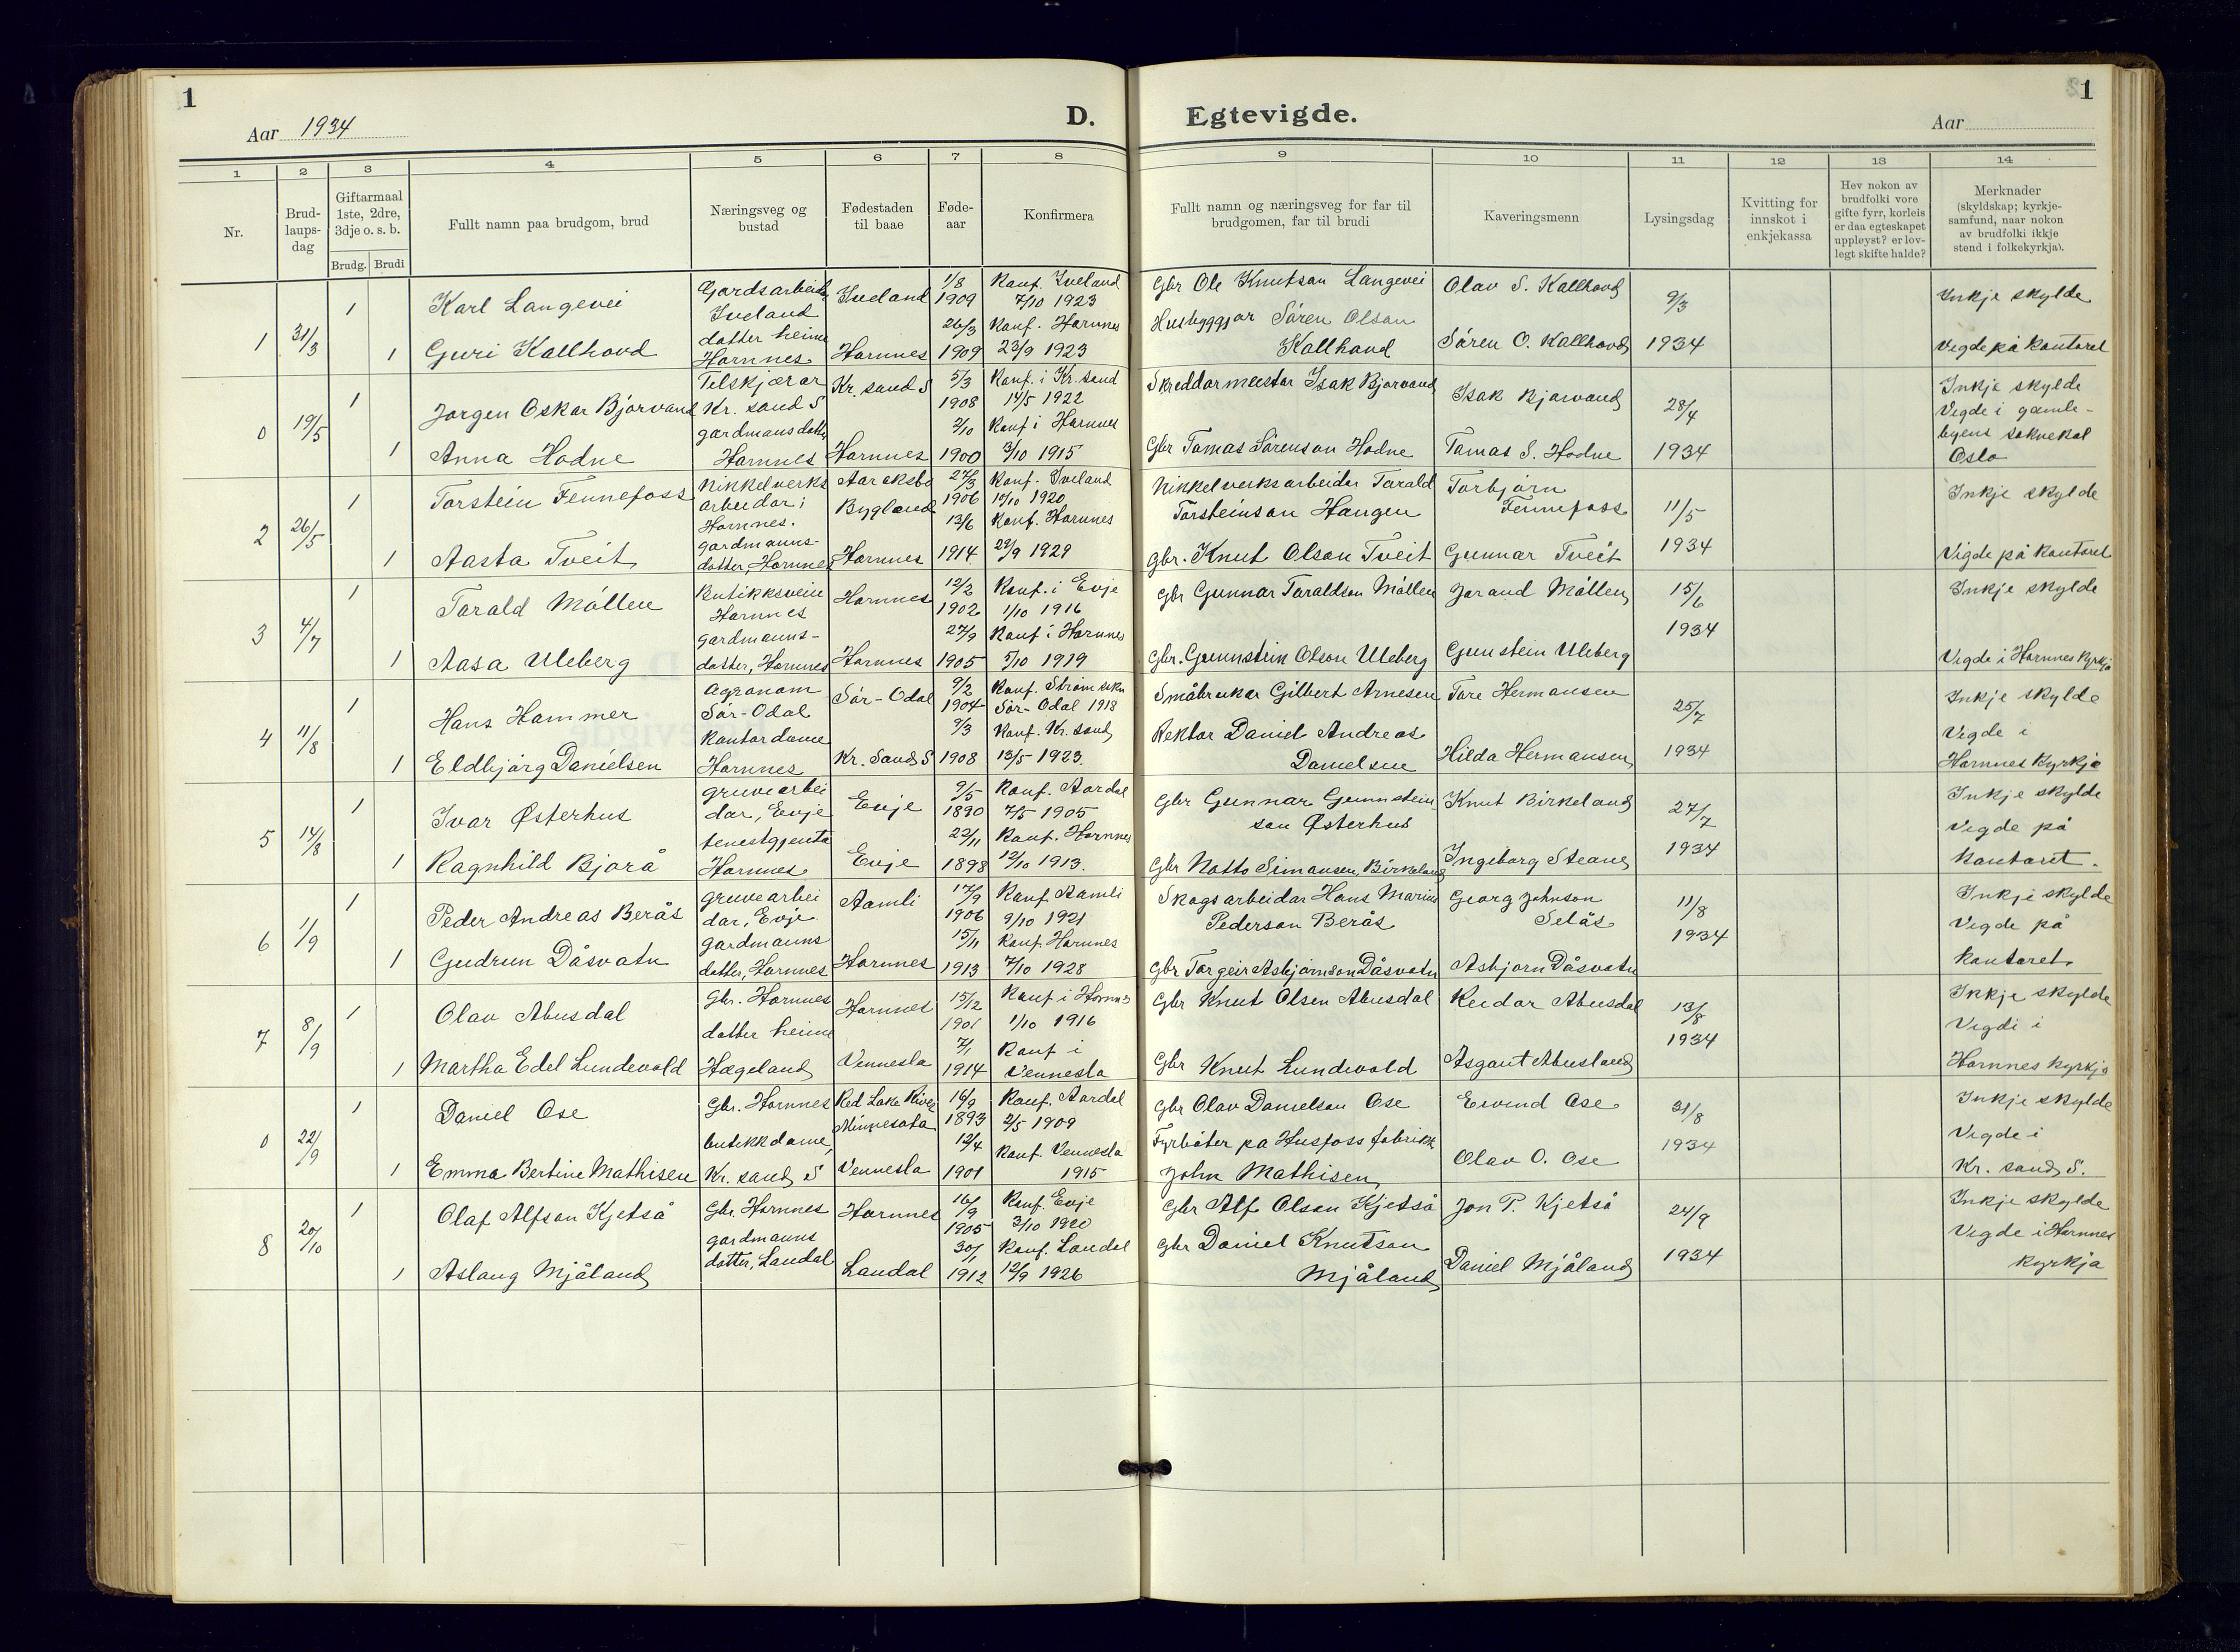 1
Aar 1934
D. Egtevigde.
Aar
1
1 2 3 4 5 6 7 8 9 10 11 12 13 14
Nr.
Brud-
laups-
dag
Giftarmaal
1ste, 2dre,
3dje o. s. b.
Brudg. Brudi
Fullt namn paa brudgom, brud
Næringsveg og
bustad
Fødestaden
til baae
Føde-
aar
Konfirmera
Fullt namn og næringsveg for far til
brudgomen, far til brudi
Kaveringsmenn
Lysingsdag
Kvitting for
innskot i
enkjekassa
Hev nokon av
brudfolki vore
gifte fyrr, korleis
er daa egteskapet
uppløyst? er lov-
legt skifte halde?
Merknader
(skyldskap; kyrkje-
samfund, naar nokon
av brudfolki ikkje
stend i folkekyrkja).
1 31/3
1 Karl Langevei
Gardsarbeidar
Iveland
Iveland
1/8
1909
Konf. Iveland
7/10 1923
Gbr Ole Knutson Langevei
Olav S. Kallhovd
9/3
1934
Inkje skylde
1 Guri Kallhovd
datter heime
Hornnes
Hornnes
26/3
1909
Konf. Hornnes
23/9 1923
Husbyggjar Sören Olson
Kallhovd
Sören O. Kallhovd
Vegde på kontoret
0 19/5
1 Jørgen Oskar Bjorvand
Kr. sand S
Kr. sand S
5/3
1908
Konf. i Kr. sand
14/5 1922
Skreddarmeistar Isak Bjorvand
Isak Bjorvand
28/4
1934
Inkje skylde
Vegde i gamle-
byens soknekal
Oslo
1 Anna Hodne
gardmansdotter
Hornnes
Hornnes
2/10
1900
Konf i Hornnes
3/10 1915
Gbr Tomas Sörenson Hodne
Tomas S. Hodne
2 26/5
1 Torstein Fennefoss
Nikkelverks
arbeidar i
Hornnes.
Aaraksbø
Bygland
27/3
1906
Konf. Iveland
10/10 1920
Nikkelverksarbeidar Tarald
Torsteinson Haugen
Torbjörn
Fennefoss
11/5
1934
Inkje skylde
1 Aasta Tveit
gardmanns-
dotter, Hornnes
Hornnes
13/6
1914
Konf. Hornnes
29/9 1929
Gbr. Knut Olson Tveit
Gunnar Tveit
Vigde på kontoret
3 4/7
1 Tarald Möllen
Butikksvein
Hornnes
Hornnes
12/2
1902
Konf. i Evje
1/10 1916
Gbr Gunnar Taraldson Möllen
Jorand Möllen
15/6
1934
Inkje skylde
1 Aasa Uleberg
gardmanns-
dotter, Hornnes
Hornnes
27/9
1905
Konf i Hornnes
5/10 1919
Gbr. Gunnstein Olson Uleberg
Gunstein Uleberg
Vegde i Hornnes kyrkja
4 11/8
1 Hans Hammer
Agronom
Sör-Odal
Sör-Odal
9/2
1904
Konf. Ström skn
Sör-Odal 1918
Småbrukar Gilbert Arnesen
Tore Hermansen
25/7
1934
Inkje skylde
Vegde i
Hornnes kyrkje
1 Eldbjörg Danielsen
Kontordame
Hornnes
Kr. Sand S
9/3
1908
Konf. Kr. sand
13/5 1923.
Rektor Daniel Andreas
Danielsen
Hilda Hermansen
5 14/8
1 Ivar Østerhus
gruvearbei
dar, Evje
Evje
9/5
1890
Konf. Aardal
7/5 1905
Gbr Gunnar Gunnstein
son Østerhus
Knut Birkeland
27/7
1934
Inkje skylde
Vegde på
kontoret.
1 Ragnhild Bjorå
tenestgjenta
Hornnes
Evje
22/11
1898
Konf. Hornnes
12/10 1913.
Gbr Notto Simonsen, Birkeland
Ingeborg Steane
6 1/9
1 Peder Andreas Berås
gruvearbei
dar, Evje
Aamli
17/9
1906
Konf Aamli
9/10 1921
Skogsarbeidar Hans Marius
Pederson Berås
Georg Johnson
Selås
11/8
1934
Inkje skylde
Vegde på
kontoret.
1 Gudrun Dåsvatn
gardmanns
dotter, Hornnes
Hornnes
15/11
1913
Konf Hornnes
7/10 1928
Gbr Torgeir Asbjörnson Dåsvatn
Asbjorn Dåsvatn
7 8/9
1 Olav Abusdal
Gbr. Hornnes
Hornnes
15/12
1901
Konf i Hornnes
1/10 1916
Gbr Knut Olsen Abusdal
Reidar Abusdal
13/8
1934
Ikkje skylde
Vegdi i
Hornnes kyrkja
1 Martha Edel Lundevold
dotter heime
Hægeland
Vennesla
7/1
1914
Konf i
Vennesla
Gbr Knut Lundevold
Asgaut Abusland
0 22/9
1 Daniel Ose
Gbr. Hornnes
Red Lake River
Minnesota
16/9
1893
Konf. Aardal
2/5 1909
Gbr Olav Danielson Ose
Eivind Ose
31/8
1934
Inkje skylde
Vegde i
Kr. sand S.
1 Emma Bertine Mathisen
butikkdame,
Kr. sand S
Vennesla
12/4
1901
Konf Vennesla
1915
Fyrböter på Husfoss fabrikk
John Mathisen
Olav O. Ose
8 20/10
1 Olaf Alfson Kjetså
Gbr. Hornnes
Hornnes
16/9
1905
Konf. Evje
3/10 1920
Gbr Alf Olson Kjetså
Jon P. Kjetså
24/9
1934
Inkje skylde
Vegde i Hornnes
kyrkja
1 Aslaug Mjåland
gardmanns
dotter, Laudal
Laudal
30/1
1912
Konf. Laudal
12/9 1926
Gbr Daniel Knutson
Mjåland
Daniel Mjåland